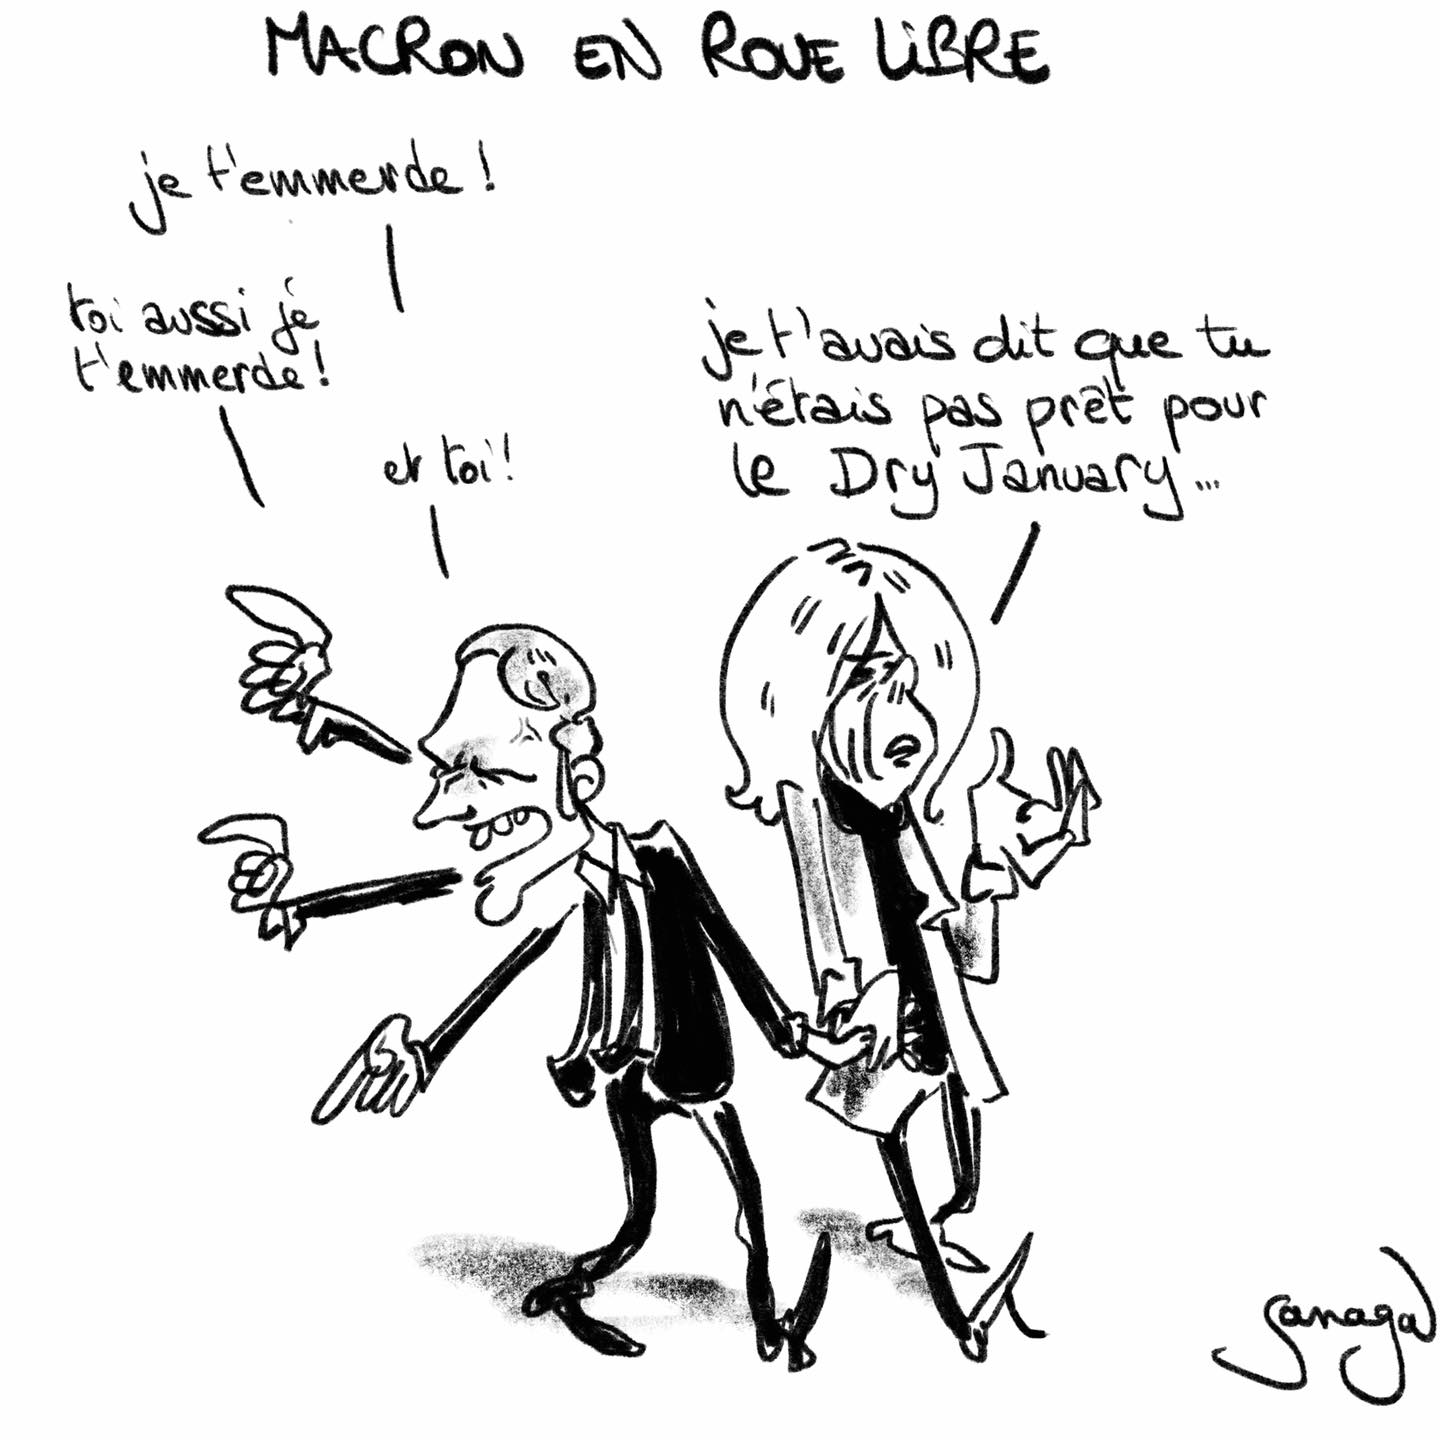 MACRON EN ROUE LIBRE
je t'emmerde !
toi aussi je
t'emmerde !
et toi !
je t'avais dit que tu
n'étais pas prêt pour
le Dry January...
Sanaga